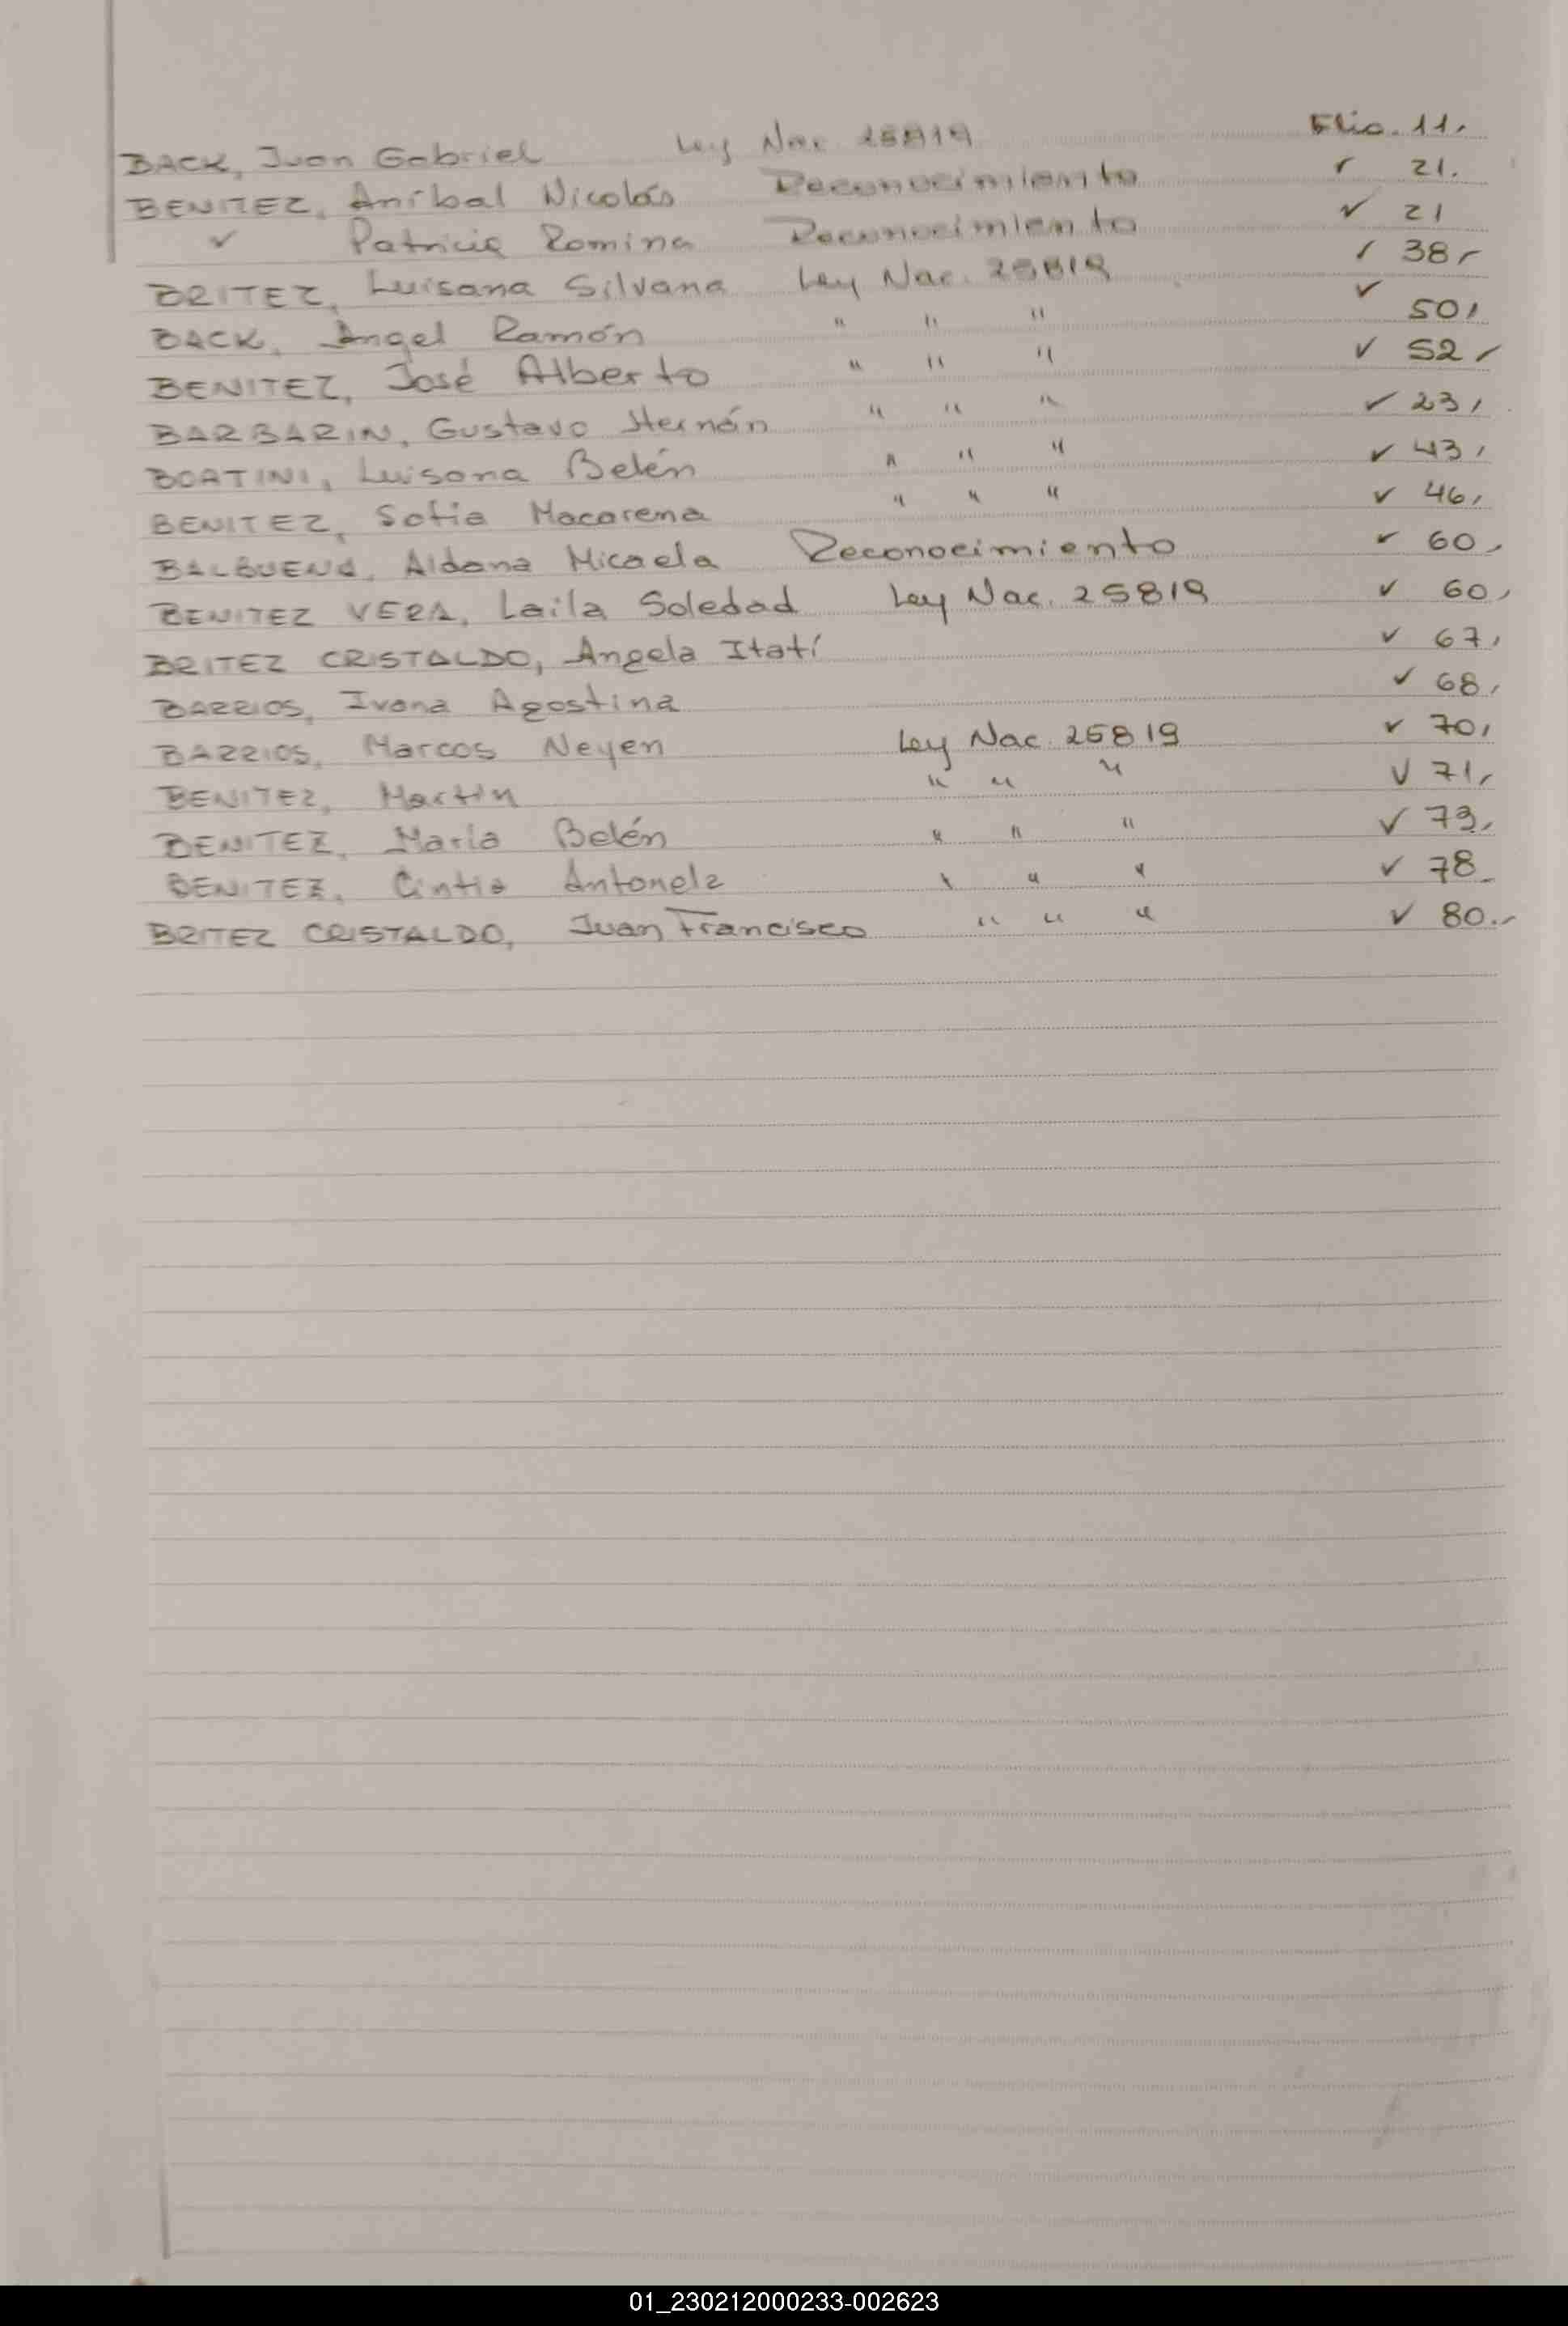 BACK, Juan Gabriel Ley Nac 25819 Flio. 11.
BENITEZ, Aníbal Nicolás Reconocimiento ✓ 21.
✓ Patricia Romina Reconocimiento ✓ 21
BRITEZ, Luisana Silvana Ley Nac. 25819 ✓ 38,
BACK, Angel Ramón " " " ✓ 50,
BENITEZ, José Alberto " " " ✓ 52,
BARBARIN, Gustavo Hernán " " " ✓ 23,
BOATINI, Luisana Belén " " " ✓ 43,
BENITEZ, Sofia Macarena " " " ✓ 46,
BALBUENA, Aldana Micaela Reconocimiento ✓ 60,
BENITEZ VERA, Laila Soledad Ley Nac. 25819 ✓ 60,
BRITEZ CRISTALDO, Angela Itatí ✓ 67,
BARRIOS, Ivana Agostina ✓ 68,
BARRIOS, Marcos Neyen Ley Nac. 25819 ✓ 70,
BENITEZ, Martin " " " ✓ 71,
BENITEZ, María Belén " " " ✓ 73,
BENITEZ, Cintia Antonela " " " ✓ 78_
BRITEZ CRISTALDO, Juan Francisco " " " ✓ 80.-
01_230212000233-002623